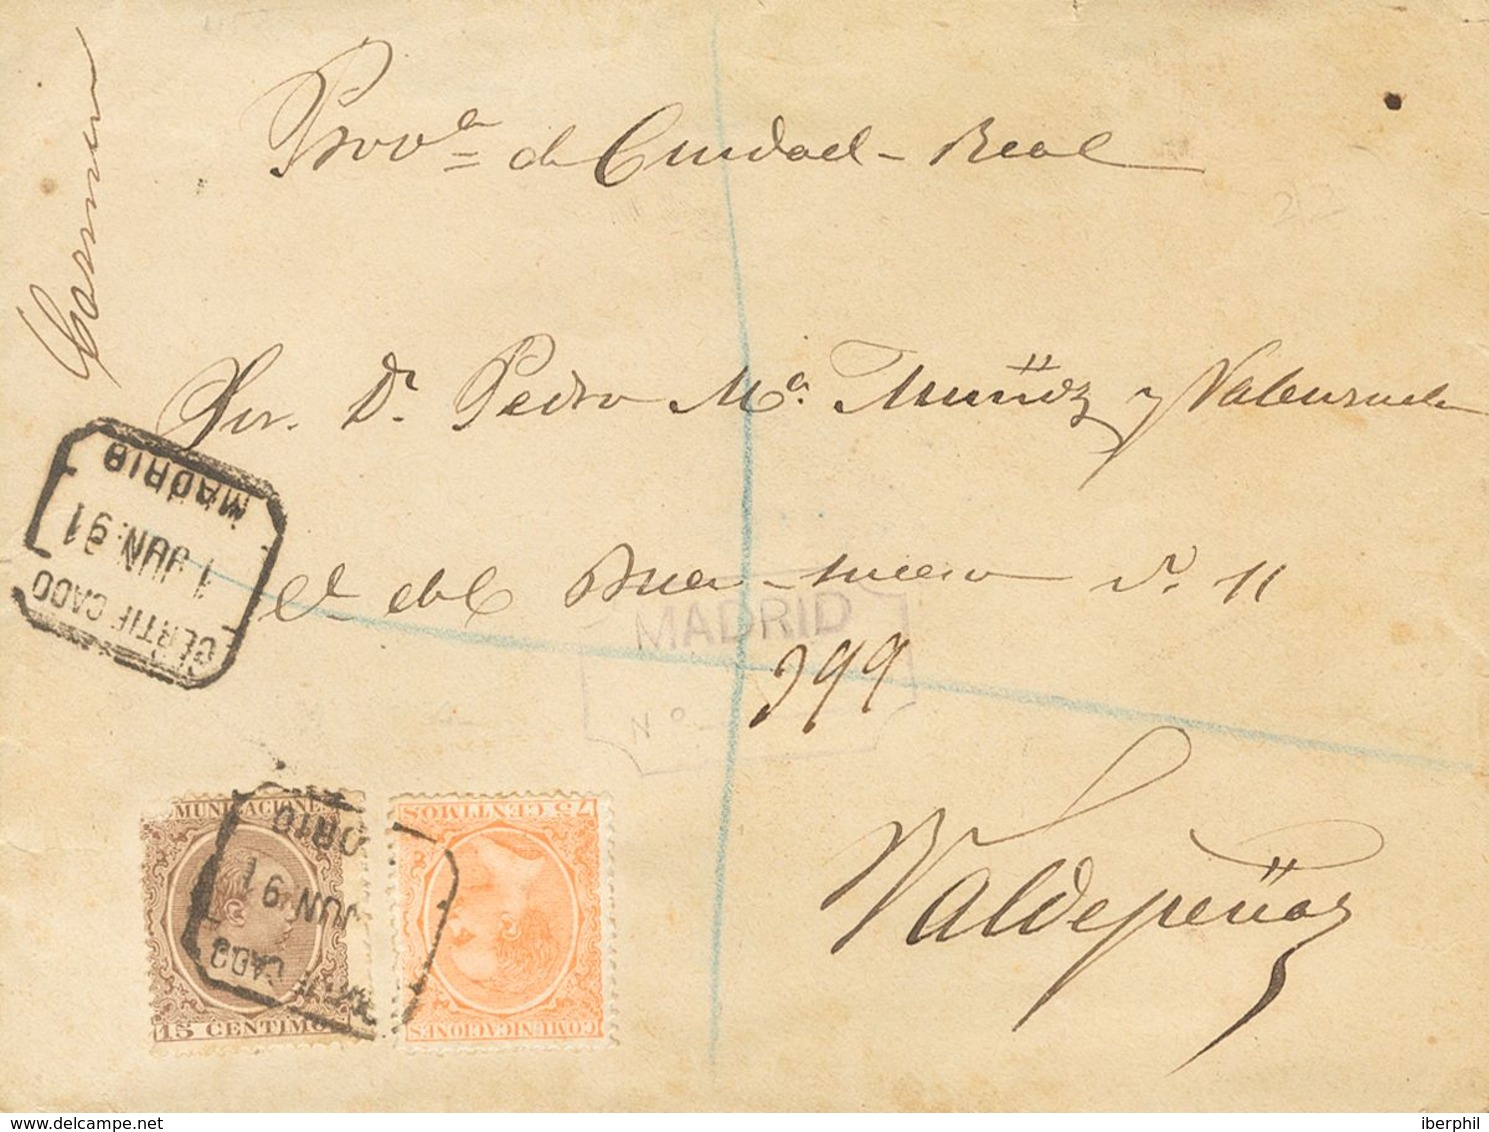 Carmen
Provª de Ciudad-Real
Sor. Dn. Pedro Mª. Muñoz y Valenzuela
Buen-suceso nº. 11
MADRID
Nº
199
Valdepeñas
CERTIFICADO
1 JUN. 91
MADRID
COMUNICACIONES
15 CENTIMOS
JUN 91
COMUNICACIONES
75 CENTIMOS
delcampe.net
iberphil